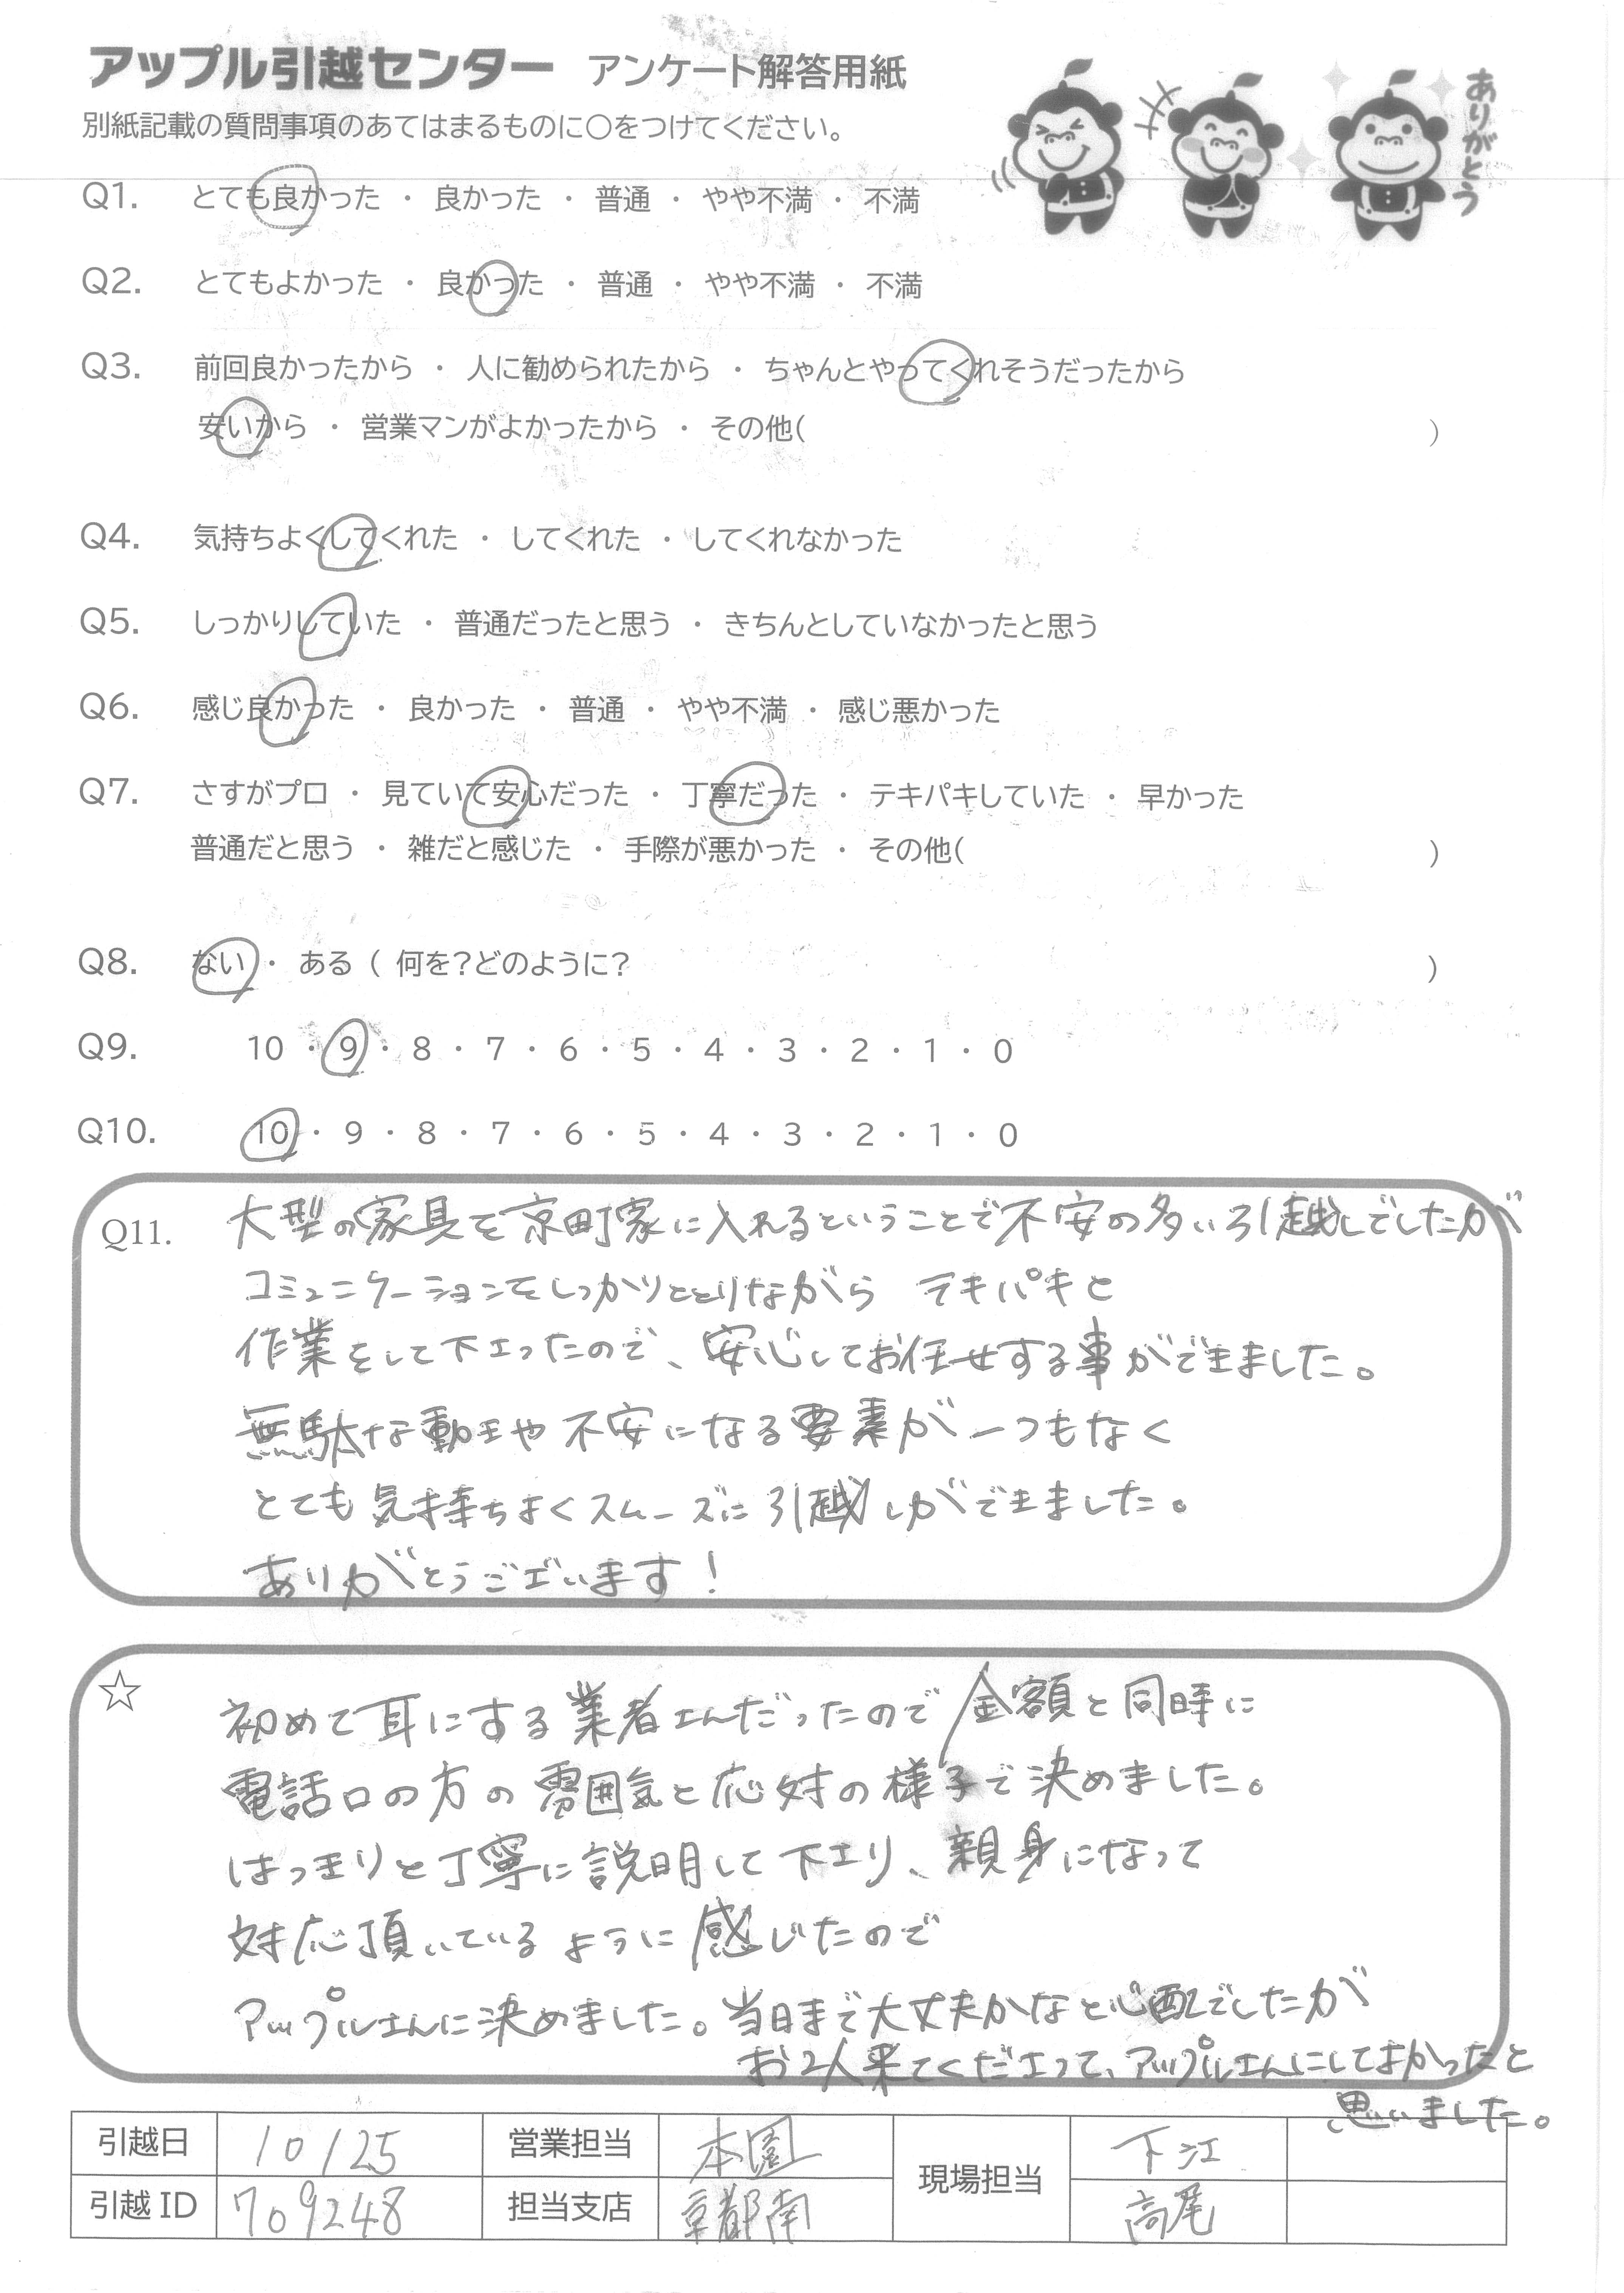 アップル引越センター アンケート解答用紙
ありがとう
別紙記載の質問事項のあてはまるものに○をつけてください。
Q1. とても良かった ・ 良かった ・ 普通 ・ やや不満 ・ 不満
Q2. とてもよかった ・ 良かった ・ 普通 ・ やや不満 ・ 不満
Q3. 前回良かったから ・ 人に勧められたから ・ ちゃんとやってくれそうだったから
安いから ・ 営業マンがよかったから ・ その他( )
Q4. 気持ちよくしてくれた ・ してくれた ・ してくれなかった
Q5. しっかりしていた ・ 普通だったと思う ・ きちんとしていなかったと思う
Q6. 感じ良かった ・ 良かった ・ 普通 ・ やや不満 ・ 感じ悪かった
Q7. さすがプロ ・ 見ていて安心だった ・ 丁寧だった ・ テキパキしていた ・ 早かった
普通だと思う ・ 雑だと感じた ・ 手際が悪かった ・ その他( )
Q8. ない ・ ある ( 何を?どのように? )
Q9. 10 ・ 9 ・ 8 ・ 7 ・ 6 ・ 5 ・ 4 ・ 3 ・ 2 ・ 1 ・ 0
Q10. 10 ・ 9 ・ 8 ・ 7 ・ 6 ・ 5 ・ 4 ・ 3 ・ 2 ・ 1 ・ 0
Q11. 大型の家具を京町家に入れるということで不安の多い引越しでしたが
コミュニケーションをしっかりととりながら テキパキと
作業をして下さったので、安心してお任せする事ができました。
無駄な動きや不安になる要素が一つもなく
とても気持ちよくスムーズに引越しができました。
ありがとうございます!
☆ 初めて耳にする業者さんだったので金額と同時に
電話口の方の雰囲気と応対の様子で決めました。
はっきりと丁寧に説明して下さり、親身になって
対応頂いているように感じたので
アップルさんに決めました。当日まで大丈夫かなと心配でしたが
お2人来てくださって、アップルさんにしてよかったと
思いました。
引越日 10/25 営業担当 本園 現場担当 下江
引越ID 709248 担当支店 京都南 高尾